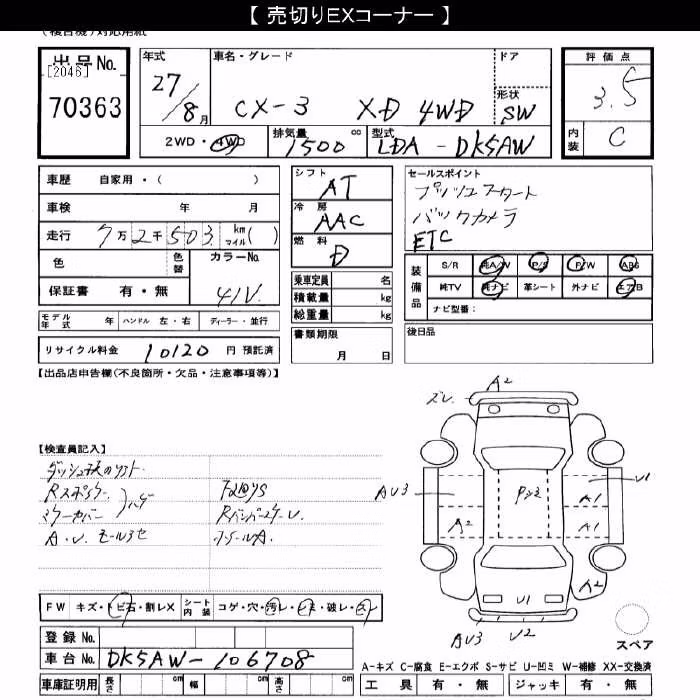 【 売切りEXコーナー 】
(複合機)対応用紙
出品No.
[2046]
70363
年式
27/8月
車名・グレード
CX-3 XD 4WD
ドア
形状
SW
評価点
3.5
内装
C
2WD・4WD
排気量
1500 cc
型式
LDA-DK5AW
車歴 自家用・( )
車検 年 月
走行 7万2千503 km マイル( )
色
色替
カラーNo.
41V
保証書 有・無
モデル年式 年
ハンドル 左・右
ディーラー・並行
リサイクル料金 10120 円 預託済
シフト
AT
冷房
AAC
燃料
D
乗車定員 名
積載量 kg
総重量 kg
書類期限
月 日
セールスポイント
プッシュスタート
バックカメラ
ETC
装備品
S/R 純A/W P/S P/W ABS
純TV 純ナビ 革シート 外ナビ エアB
ナビ型番:
後日品
【出品店申告欄(不良箇所・欠品・注意事項等)】
【検査員記入】
A・U
RバンパースケーU.
FW キズ・トビ石・割レX
シート内装
コゲ・穴・汚レ・シミ・破レ・スレ
登録No.
車台No. DK5AW-106708
車庫証明用 長さ cm 幅 cm 高さ cm
A2
ズレ
AU3
Pシミ
U1
A1
A2
A1
A2
U1
AU3
U2
スペア
A-キズ C-腐食 E-エクボ S-サビ U-凹ミ W-補修 XX-交換済
工具 有・無 ジャッキ 有・無